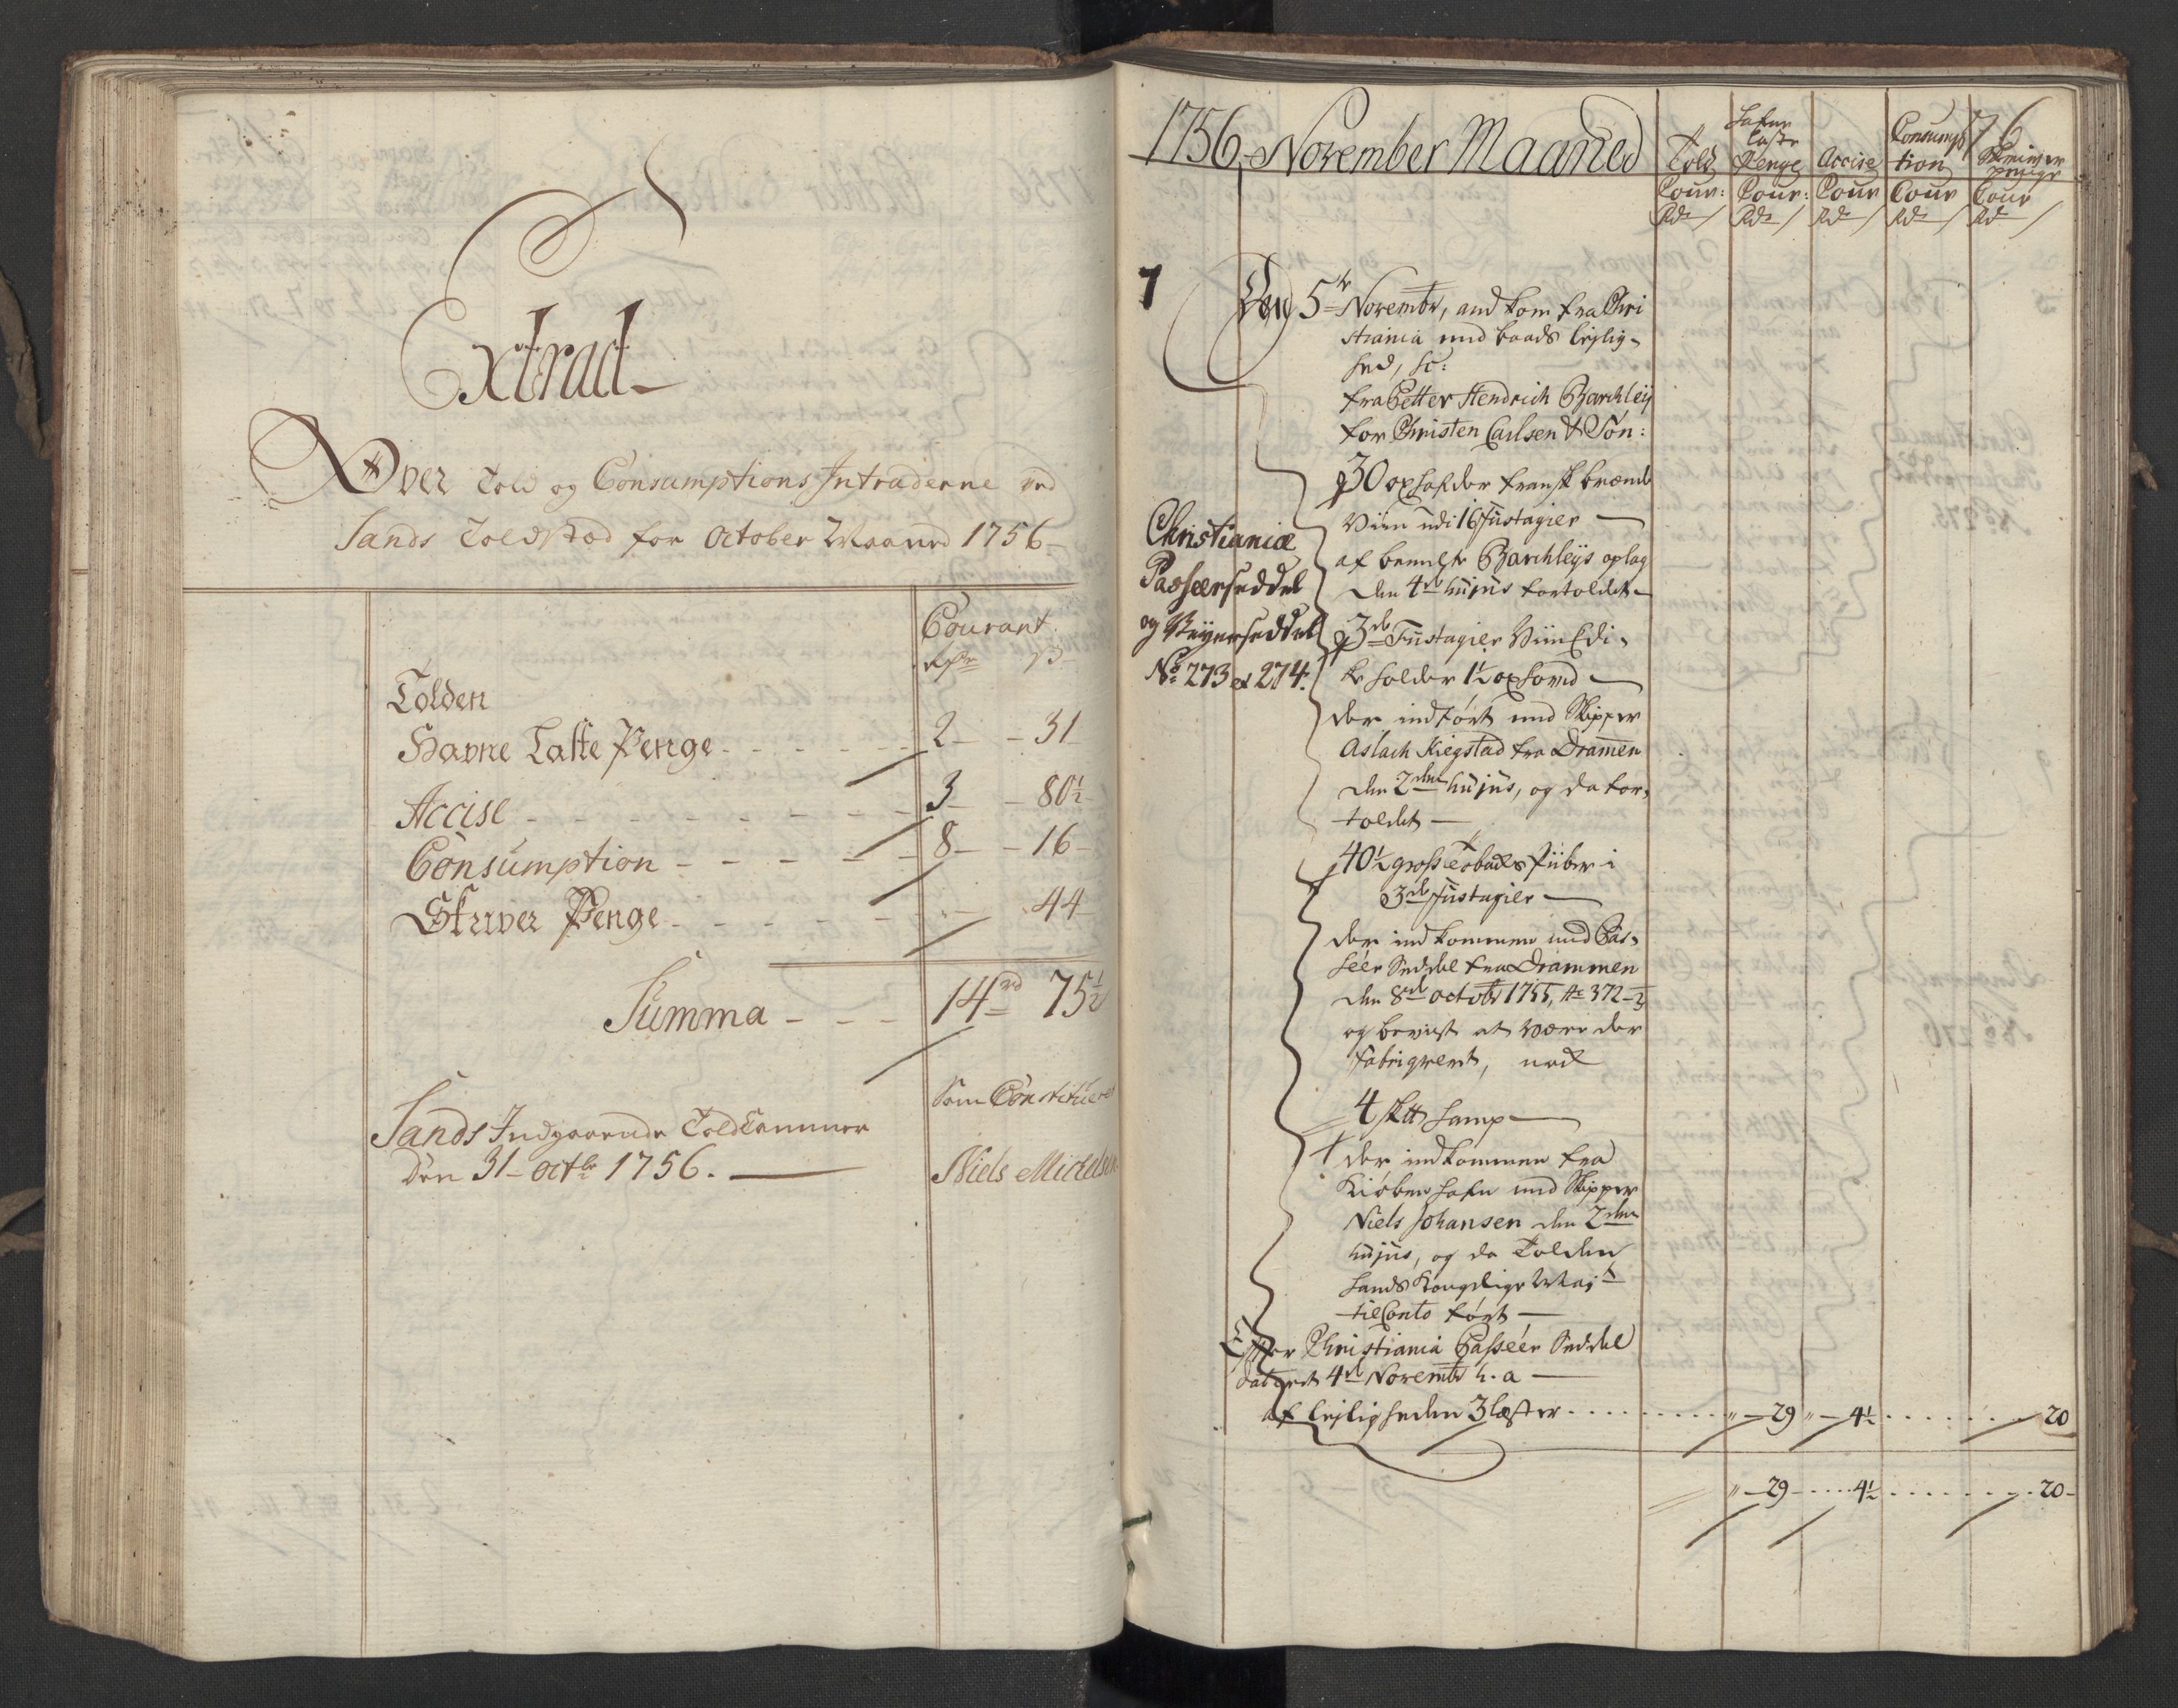 Extract
Over Told og Consumptions Intraderne ved
Sands Toldstæd for October Maaned 1756
Courant
Rdr ß
Tolden
Havne Laste Penge - - - - - - 2 - 31
Accise - - - - - - - - 3 - 80½
Consumption - - - - - 8 - 16
Skriver Penge - - - - - - 44
Summa - - - 14rd 75½
Sands Indgaaende Toldkammer
Den 31 - octbr 1756.
Som Constitueret
Niels Michelsen
1756. November Maaned
76
Told
Hafne Laste Penge
Accise
Consumption
Skriver penge
Cour: Cour: Cour Cour Cour
Rdr / Rdr / Rdr / Rdr / Rd /
1
Den 5te Novembr, ankom fra Chri
stiania med baads leylig-
hed, sc:
fra Petter Hendrich Barchley
for Christen Carlsen & Søn:
30 oxhofder fransk brænde
Viin udi 16 fustagier
af bemelte Barchleys oplag
den 4de hujus fortoldet
3de Fustagier Viin Edi-
ke holder 1½ oxhoved
der indført med Skipper
Aslach Kiegstad fra Dramen
den 2den hujus, og da for-
toldet
40½ grosse tobaks Piiber i
3de fustagier
der indkommen med Pas-
seer Seddel fra Drammen
den 8de octobr 1755, No 372-3
og bevist at være der
fabriqveret, nok
4 sk℔ hamp
der indkommen fra
Kiøbenhafn med Skipper
Niels Johansen den 2den
hujus, og da Tolden
hands Kongelige Mayt
til Conto ført
Efter Christiania Passeer Seddel
dateret 4de Novembr h. a
af leyligheden 3 læster . . . . " - 29 " - 4½ . . . . 20
" - 29 - . . . . 4½ . . . . 20 -
Christianiæ
Passeerseddel
og Veyerseddel
No 273 et 274.